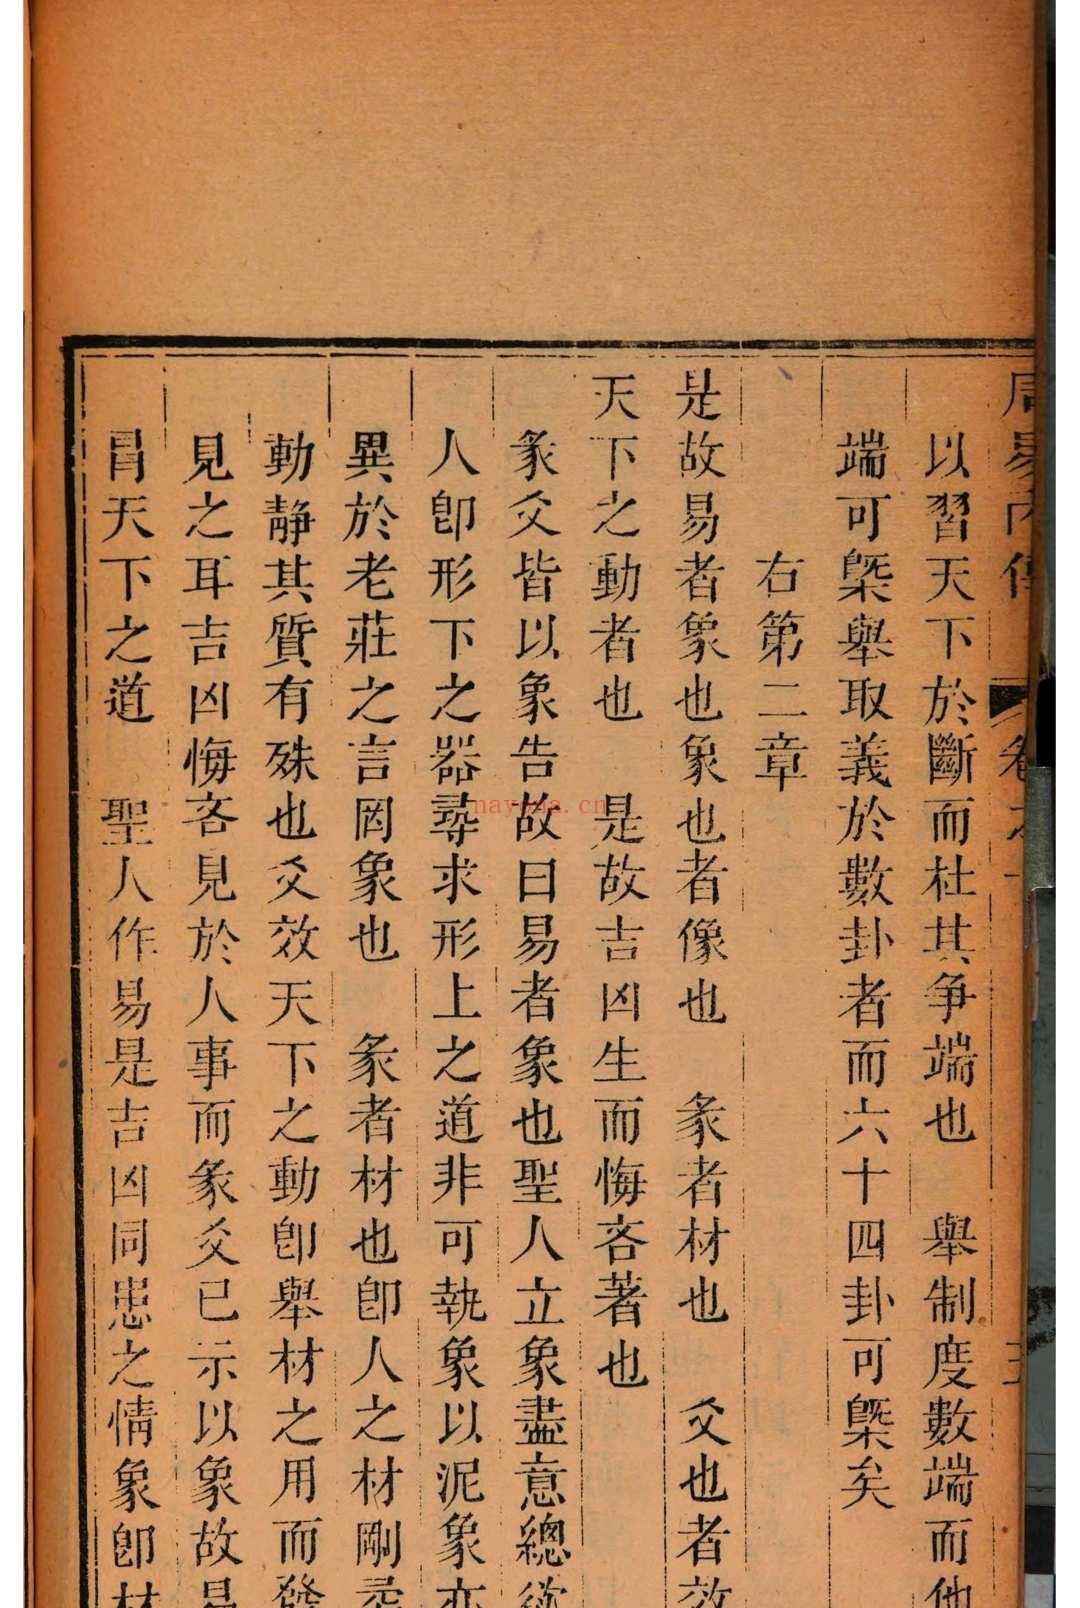 周易內傳 卷之
以習天下於斷而杜其爭端也　舉制度數端而他
端可槩舉取義於數卦者而六十四卦可槩矣
右第二章
是故易者象也象也者像也　彖者材也　爻也者效
天下之動者也　是故吉凶生而悔吝著也
彖爻皆以象告故曰易者象也聖人立象盡意總欲
人卽形下之器尋求形上之道非可執象以泥象亦
異於老莊之言罔象也　彖者材也卽人之材剛柔
動靜其質有殊也爻效天下之動卽舉材之用而發
見之耳吉凶悔吝見於人事而彖爻已示以象故易
冐天下之道　聖人作易是吉凶同患之情象卽材
nayona.cn